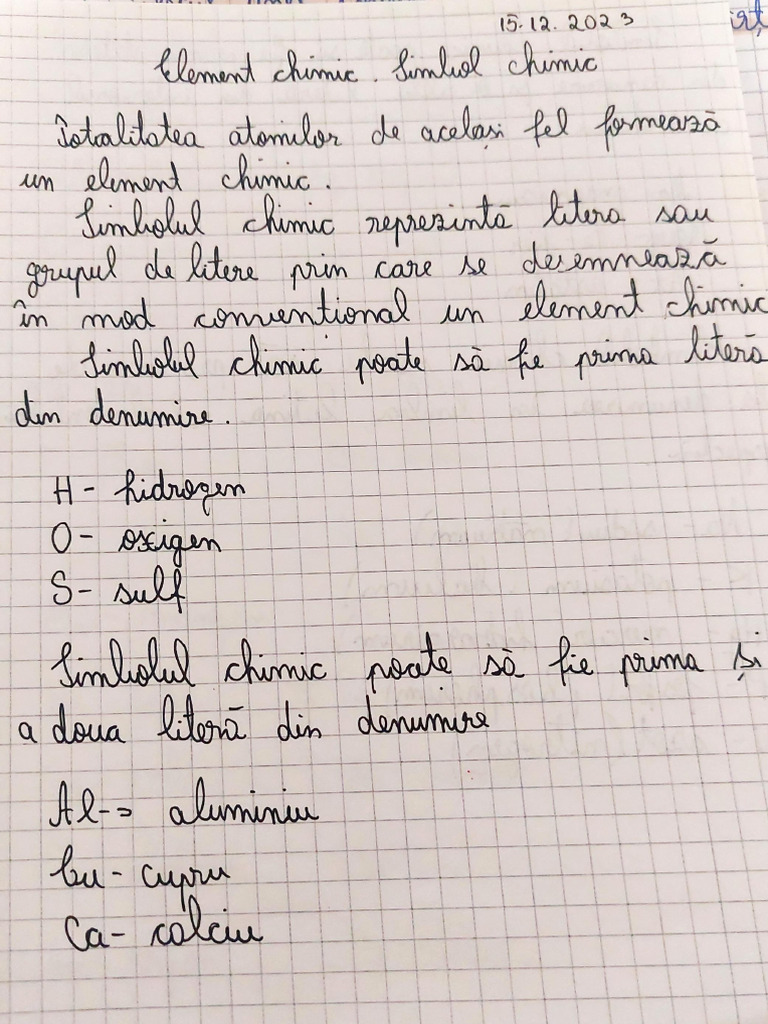 15.12.2023
Element chimic. Simbol chimic
Totalitatea atomilor de același fel formează
un element chimic.
Simbolul chimic reprezintă litera sau
grupul de litere prin care se desemnează
în mod conventional un element chimic
Simbolul chimic poate să fie prima literă
din denumire.
H - hidrogen
O - oxigen
S - sulf
Simbolul chimic poate să fie prima și
a doua literă din denumire
Al-> aluminiu
Cu - cupru
Ca - calciu